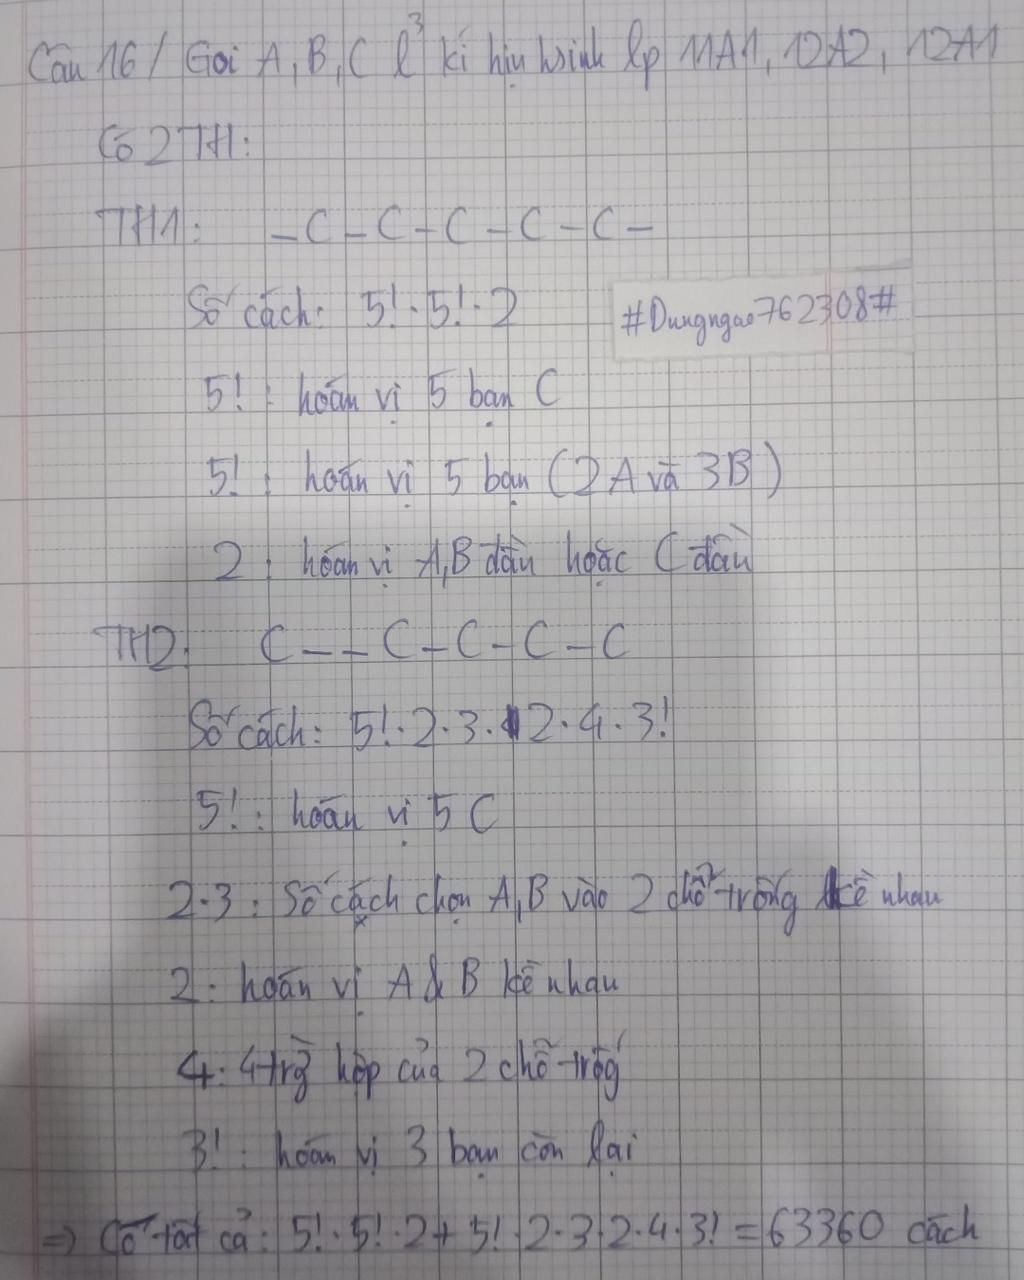 Câu 16/ Gọi A, B, C l kí hịu hsinh lp 11A1, 12A2, 12A1
Có 2TH:
TH1: - C - C - C - C - C -
Số cách: 5!.5!.2
#Dungngao762308#
5! : hoán vị 5 bạn C
5! : hoán vị 5 bạn (2A và 3B)
2 : hoán vị A,B đầu hoặc C đầu
TH2: C - - C - C - C - C
Số cách: 5!.2.3.2.4.3!
5! : hoán vị 5 C
2.3 : Số cách chọn A,B vào 2 chỗ trống kề nhau
2: hoán vị A & B kề nhau
4: 4 trg hợp của 2 chỗ trốg
3! : hoán vị 3 bạn còn lại
=> Có tất cả: 5!.5!.2 + 5!.2.3.2.4.3! = 63360 cách